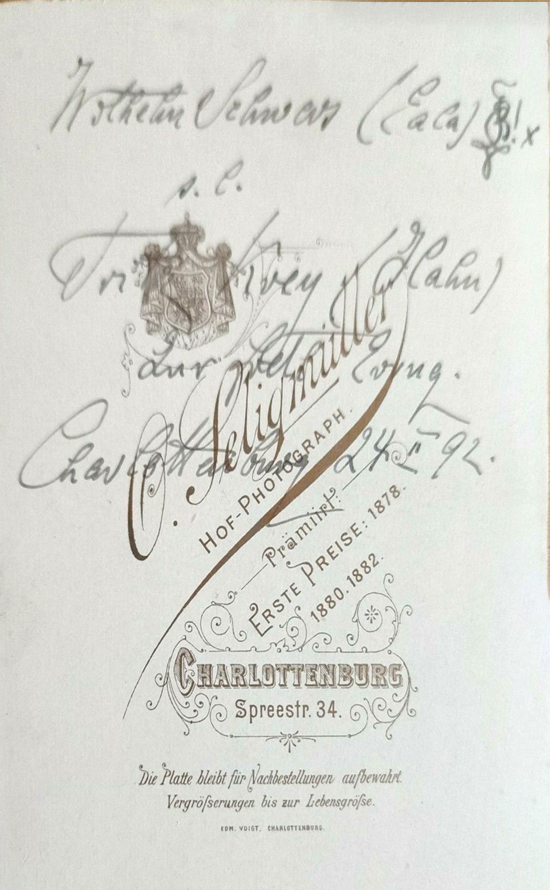 Wilhelm Schwers (Eala)
s. l.
(Hahn)
zur Erinng.
Charlottenburg 24 II 92.
C. Seligmüller
HOF-PHOTOGRAPH.
Prämiirt:
ERSTE PREISE: 1878.
1880. 1882.
CHARLOTTENBURG
Spreestr. 34.
Die Platte bleibt für Nachbestellungen aufbewahrt.
Vergröſserungen bis zur Lebensgröſse.
EDM. VOIGT, CHARLOTTENBURG.